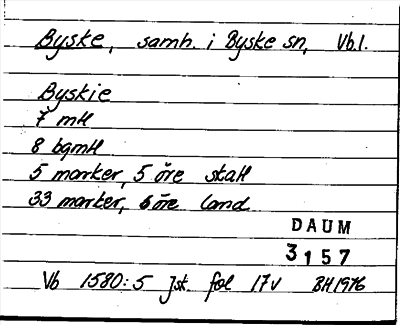 Byske, samh. i Byske sn, Vb.l.
Byskie
7 mtl
8 bgmtl
5 marker, 5 öre skatt
33 marker, 6 öre land
DAUM
3157
Vb 1580:5 Jsk. fol 17v BH 1976